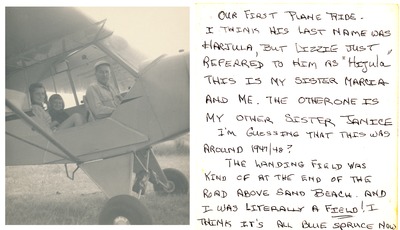 OUR FIRST PLANE RIDE.
I THINK HIS LAST NAME WAS
HARJULA, BUT LIZZIE JUST
REFERRED TO HIM AS "HIJULA"
THIS IS MY SISTER MARCIA
AND ME. THE OTHER ONE IS
MY OTHER SISTER JANICE
I'M GUESSING THAT THIS WAS
AROUND 1947/48?
THE LANDING FIELD WAS
KIND OF AT THE END OF THE
ROAD ABOVE SAND BEACH. AND
I WAS LITERALLY A FIELD! I
THINK IT'S ALL BLUE SPRUCE NOW